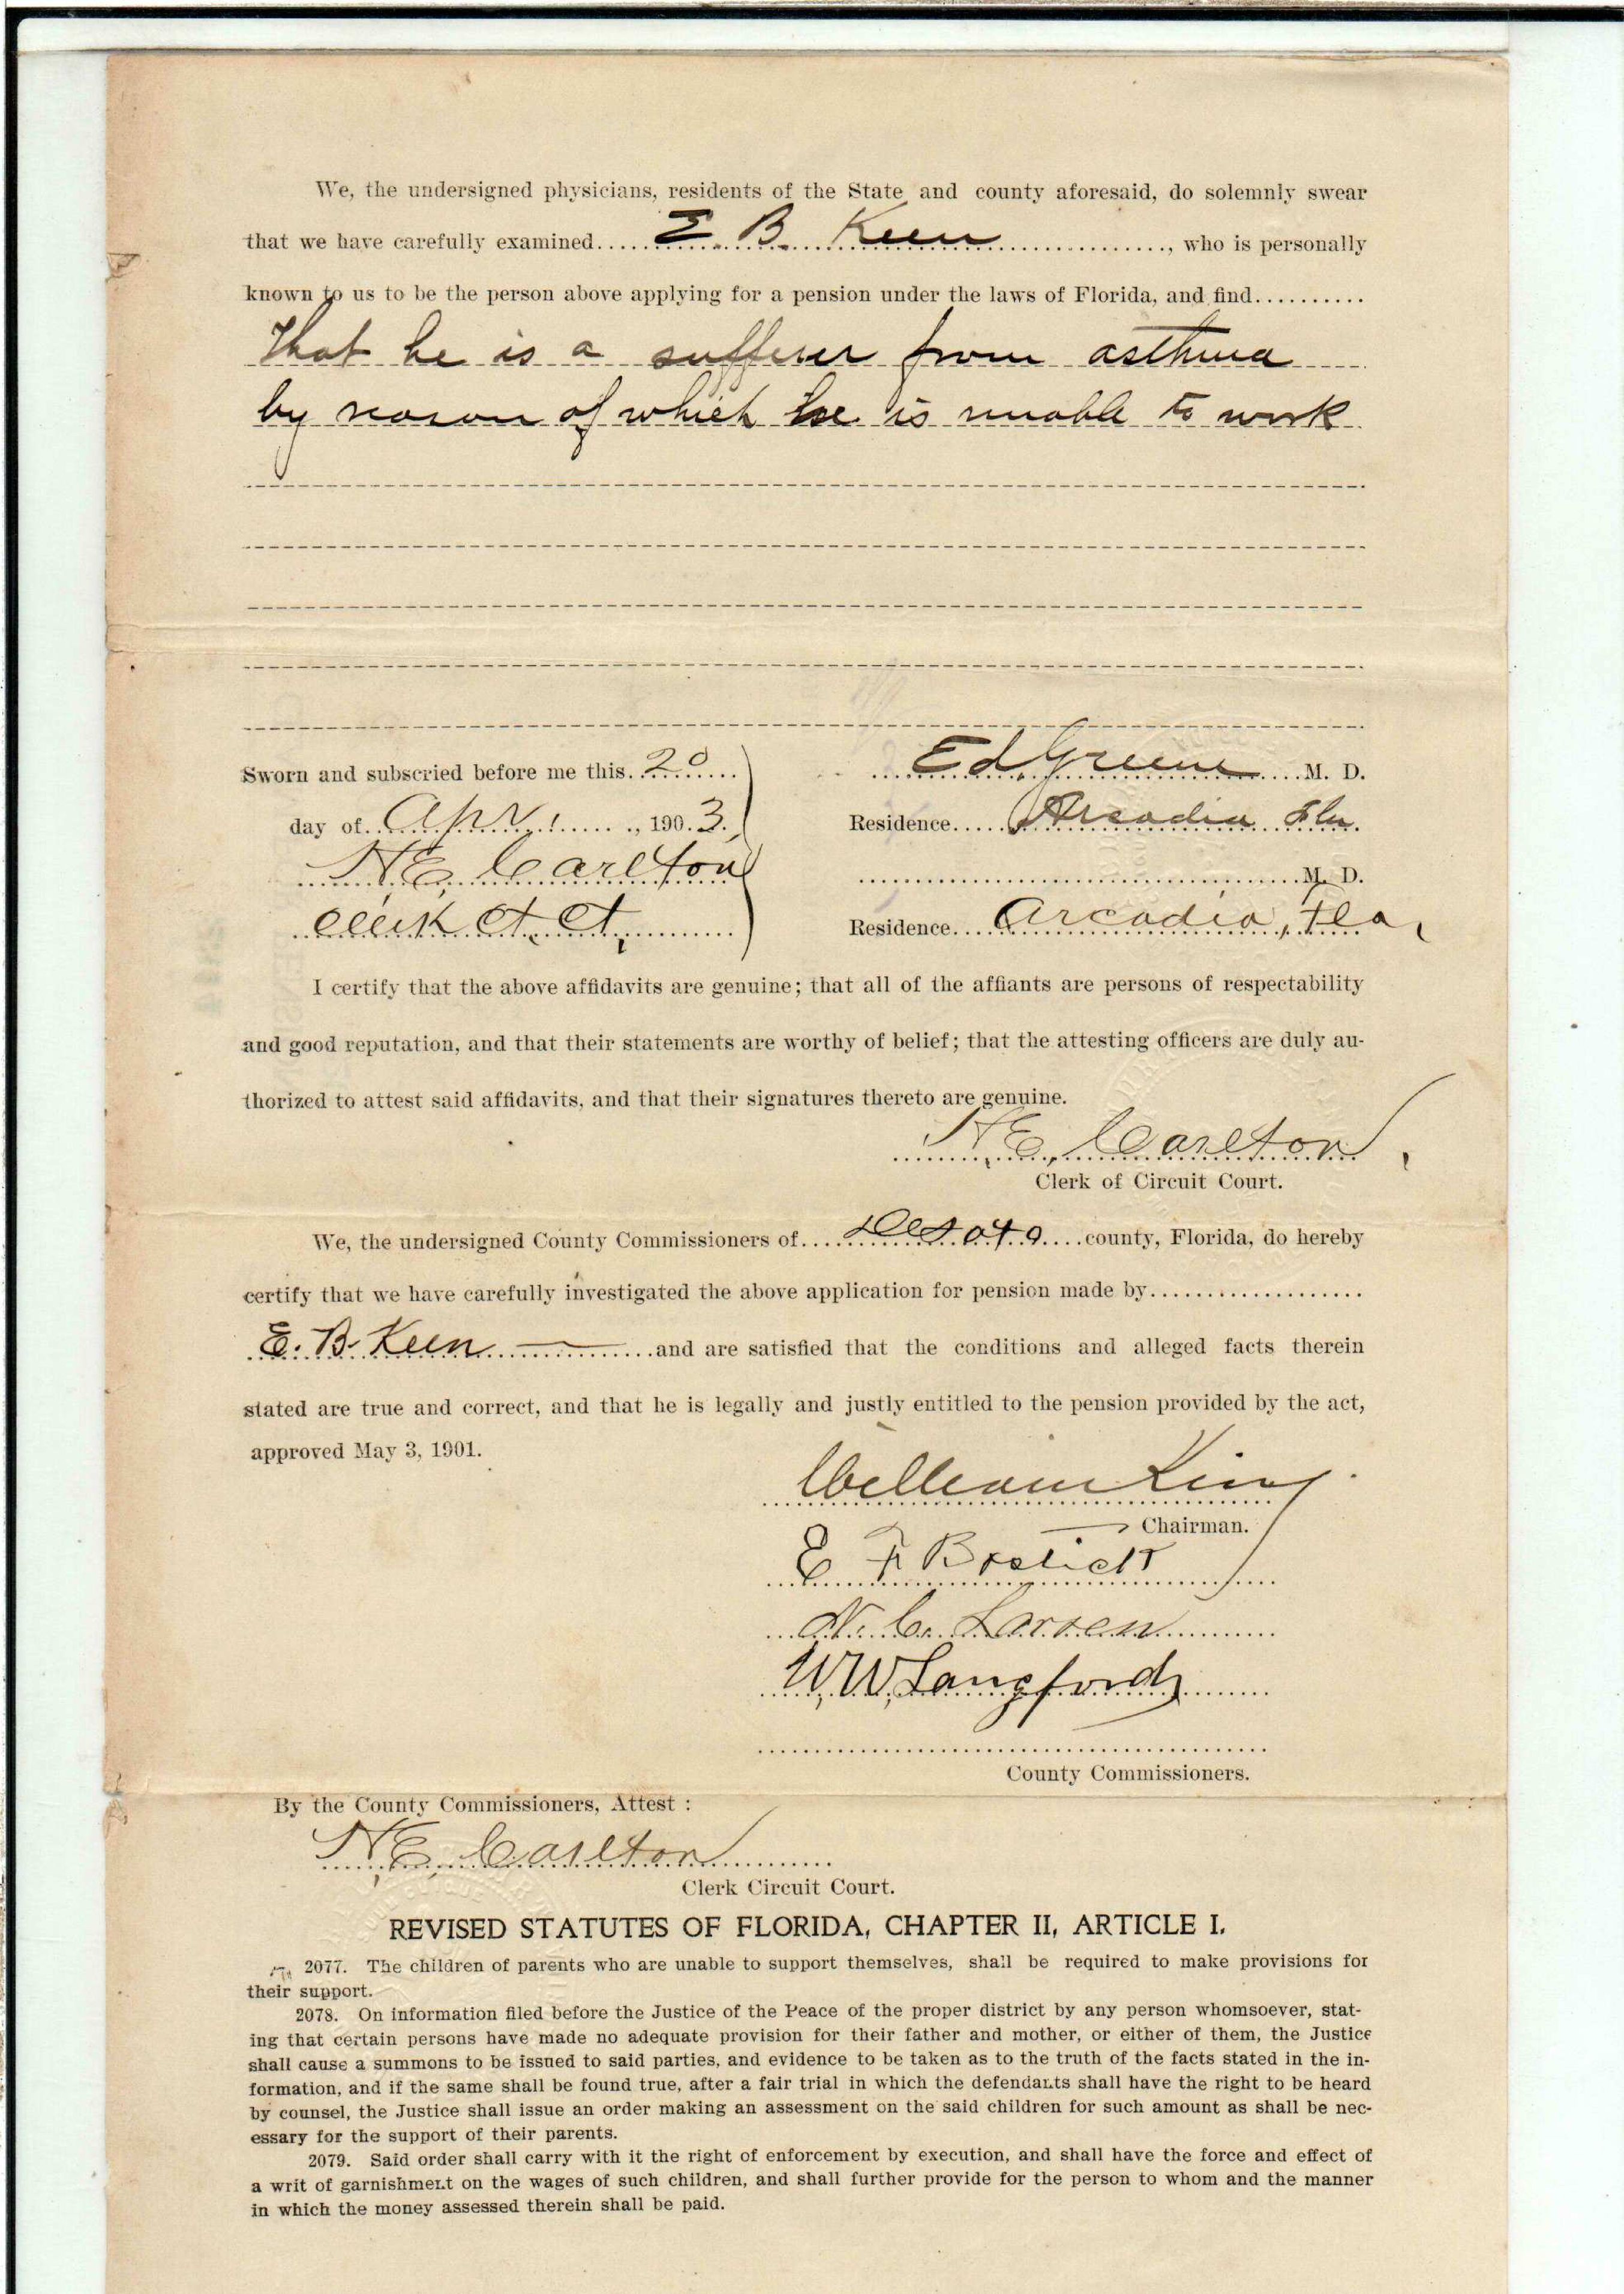 We, the undersigned physicians, residents of the State and county aforesaid, do solemnly swear
that we have carefully examined..... E. B. Keen ..............., who is personally
known to us to be the person above applying for a pension under the laws of Florida, and find..........
That he is a sufferer from asthma
by reason of which he is unable to work
Sworn and subscried before me this. 20 ....
day of.. Apr. ......, 190.3.
N. E. Carlton
Clerk Ct. Ct.
Ed Greene ....M. D.
Residence..... Arcadia Fla.
........................................M. D.
Residence.... Arcadia, Fla,
I certify that the above affidavits are genuine; that all of the affiants are persons of respectability
and good reputation, and that their statements are worthy of belief; that the attesting officers are duly au-
thorized to attest said affidavits, and that their signatures thereto are genuine.
N. E. Carlton,
Clerk of Circuit Court.
We, the undersigned County Commissioners of.... DeSoto ....county, Florida, do hereby
certify that we have carefully investigated the above application for pension made by...................
E. B. Keen ...............and are satisfied that the conditions and alleged facts therein
stated are true and correct, and that he is legally and justly entitled to the pension provided by the act,
approved May 3, 1901.
William King
Chairman.
E F Bostick
N. C. Larsen
W. W. Langford
County Commissioners.
By the County Commissioners, Attest :
N. E. Carlton
Clerk Circuit Court.
REVISED STATUTES OF FLORIDA, CHAPTER II, ARTICLE I.
2077. The children of parents who are unable to support themselves, shall be required to make provisions for
their support.
2078. On information filed before the Justice of the Peace of the proper district by any person whomsoever, stat-
ing that certain persons have made no adequate provision for their father and mother, or either of them, the Justice
shall cause a summons to be issued to said parties, and evidence to be taken as to the truth of the facts stated in the in-
formation, and if the same shall be found true, after a fair trial in which the defendants shall have the right to be heard
by counsel, the Justice shall issue an order making an assessment on the said children for such amount as shall be nec-
essary for the support of their parents.
2079. Said order shall carry with it the right of enforcement by execution, and shall have the force and effect of
a writ of garnishment on the wages of such children, and shall further provide for the person to whom and the manner
in which the money assessed therein shall be paid.